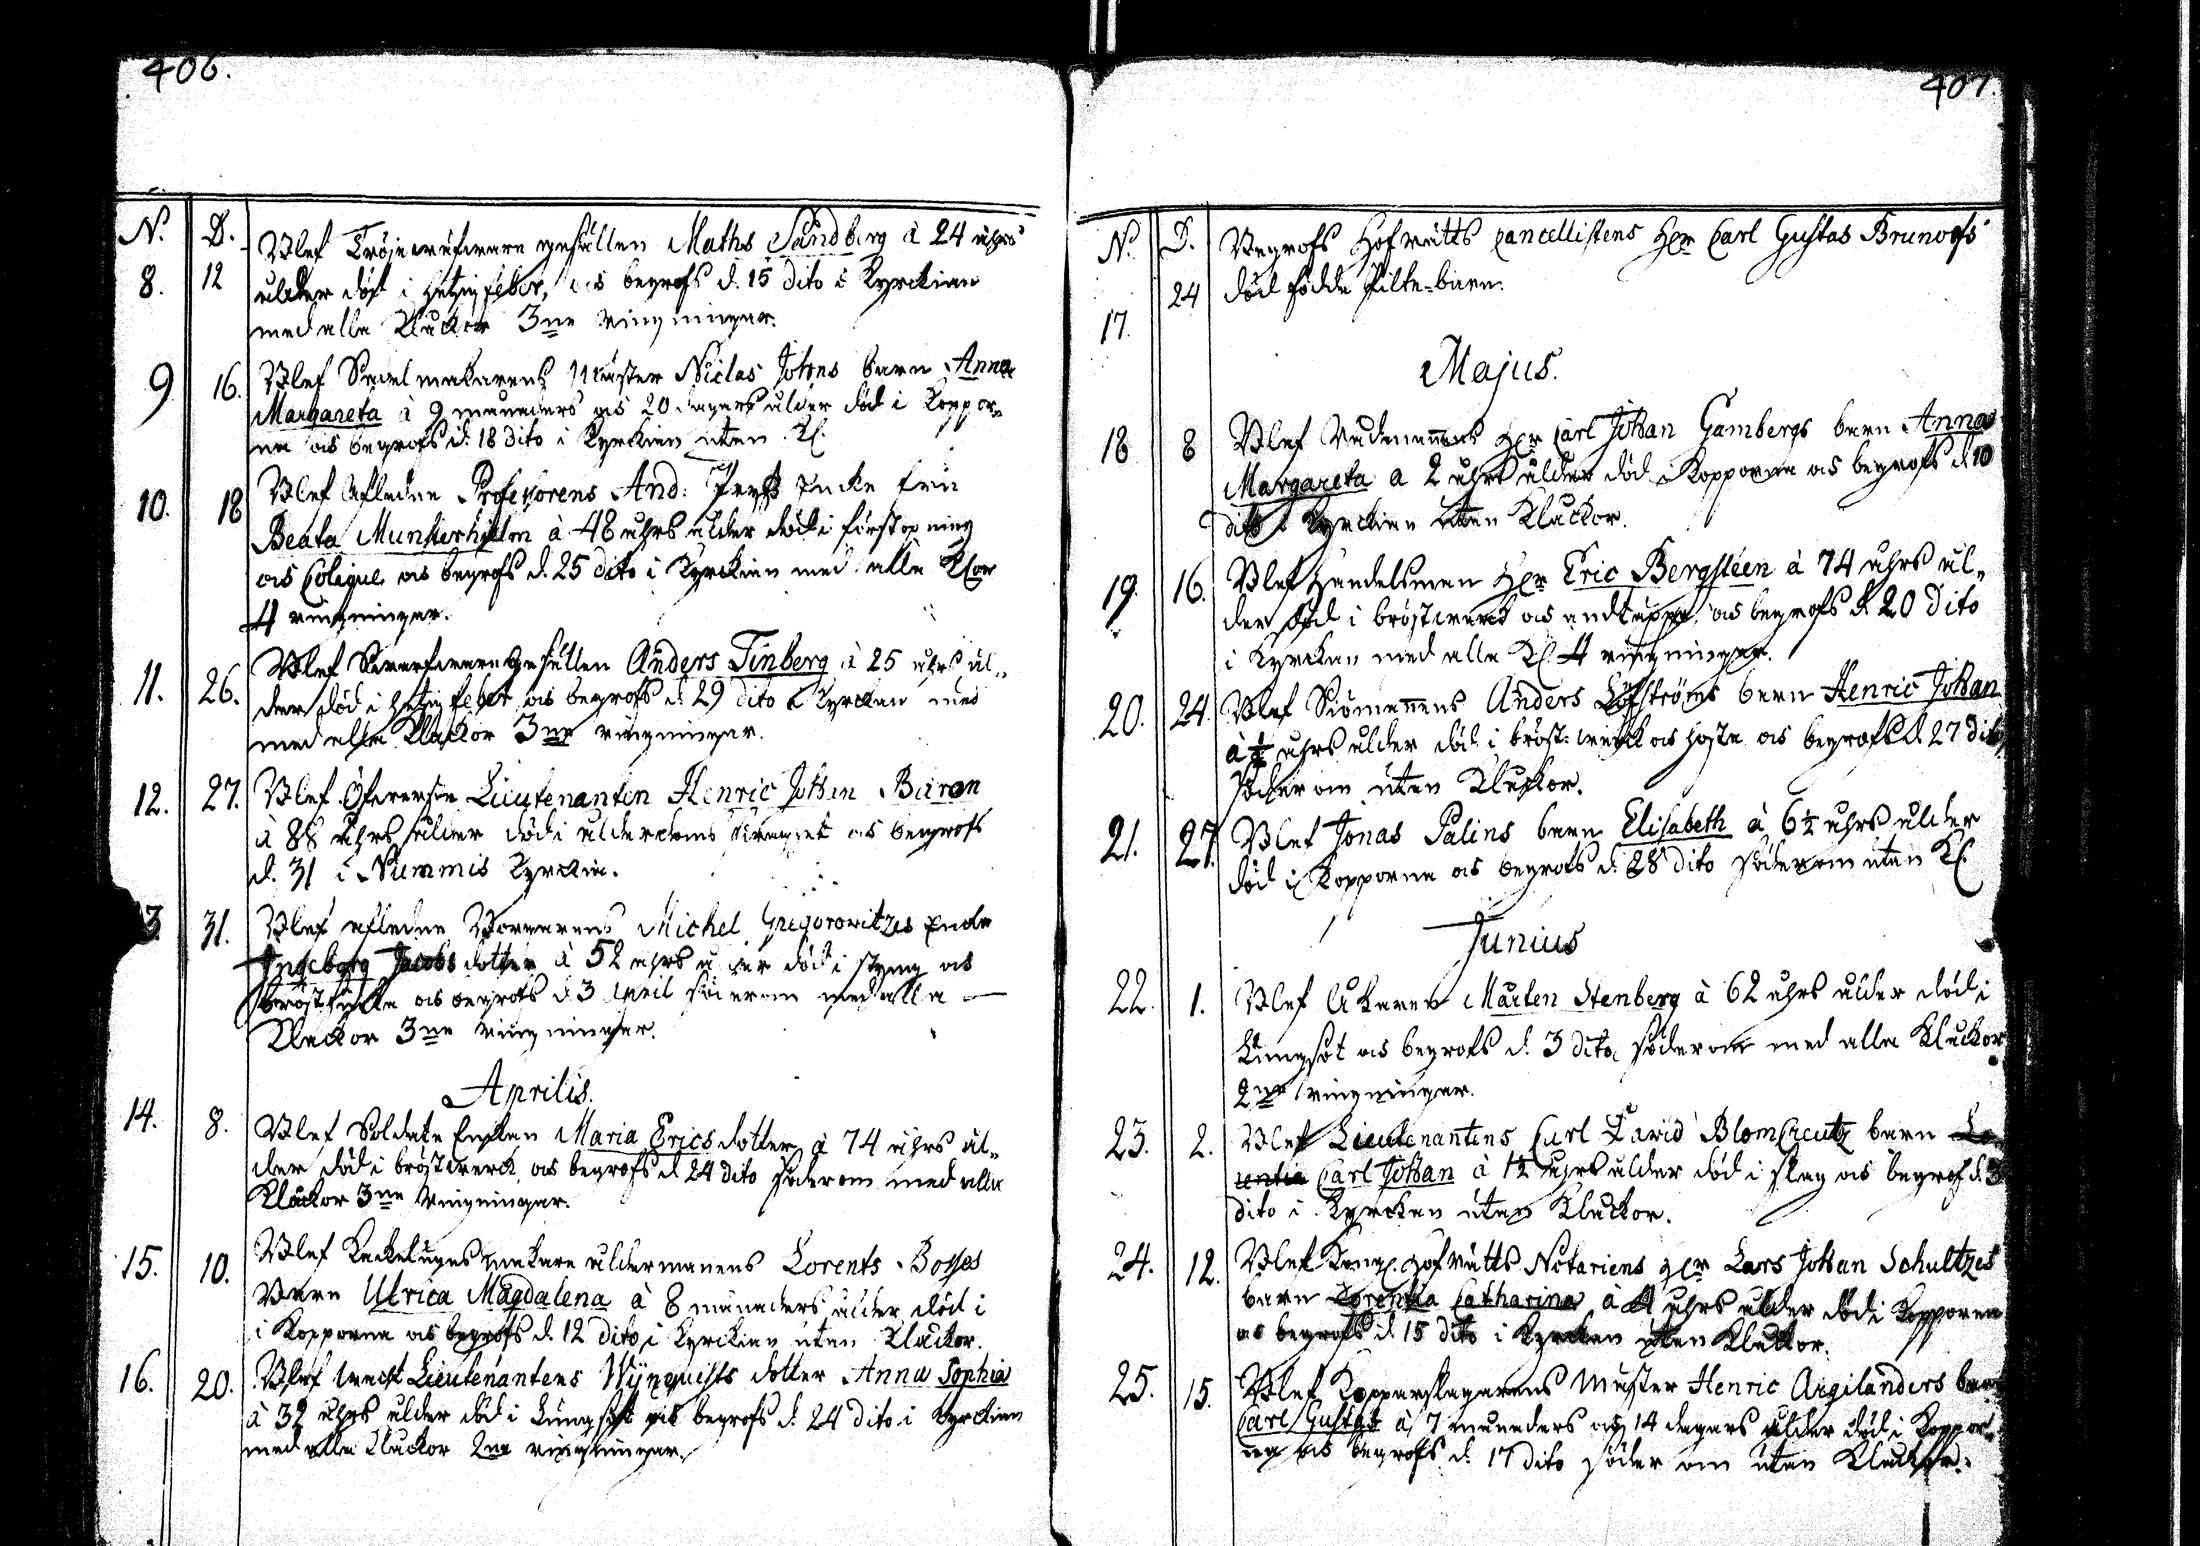 406.
N. D.
8. 12 Blef Tröjewäfware gesällen Maths Sandberg à 24 åhrs
ålder död i hetzig feber, os begrofs d. 15 dito i Kyrckian
med alla Kluckor 3ne ringningar.
9 16. Blef Sadelmakarens Mäster Niclas Johns barn Anna
Margareta à 9 månaders os 20 dagars ålder död i koppor„
na os begrofs d. 18 dito i Kyrckian utan Kl.
10. 18 Blef afledne Professorens And: Encke fru
Beata Munsterhjelm à 48 åhrs ålder död i förstopning
os Colique os begrofs d. 25 dito i Kyrckian med alla Klor
4 ringningar.
11. 26. Blef gesällen Anders Tinberg à 25 åhrs ål„
der död i hetzig feber os begrofs d. 29 dito i Kyrckan med
med alla Kluckor 3ne ringningar.
12. 27. Blef Öfwerste Lieutenanten Henric Johan Buran
à 88 åhrs ålder död i ålderdoms os begrofs
d. 31 i Nummis Kyrckia.
13. 31. Blef afledne Borgarens Michel Gregorowitzes Encka
Ingeborg Jacobs dotter à 52 åhrs ålder död i styng os
bröstsiucka os begrofs d. 3 April söder om med alla —
Kluckor 3ne ringningar.
Aprilis.
14. 8. Blef Soldate Enckan Maria Ericsdotter à 74 åhrs ål„
der död i bröstwerck os begrofs d. 24 dito söder om med alla
Kluckor 3ne ringningar.
15. 10. Blef Kackelugnsmakare åldermanens Lorents Bosses
Barn Ulrica Magdalena à 8 månaders ålder död i
i Kopporna os begrofs d. 12 dito i Kyrckian utan Kluckor.
16. 20. Blef Lieutenantens Wijnquists dotter Anna Sophia
à 32 åhrs ålder död i Lungsot os begrofs d. 24 dito i Kyrckian
med alla Kluckor 2ne ringningar.
407.
N. D.
17. 24 Begrofs Hofrätts Cancellistens Hr Carl Gustaf Brunous
död födde Pilte-barn.
Majus.
18 8 Blef Rådmannens Hr Carl Johan Gambergs barn Anna
Margareta a 2 åhrs ålder död i Kopporna os begrofs d. 10
dito i Kyrckian utan Kluckor.
19. 16. Blef Handelsman Hr Eric Bergsteen à 74 åhrs ål„
der död i bröstwerck os andtäppa os begrofs d. 20 dito
i Kyrckan med alla Kl. 4 ringningar.
20. 24. Blef Siömannens Anders Löfströms barn Henric Johan
à ½ åhrs ålder död i bröst-werck os hosta os begrofs d. 27 dito
söder om utan Kluckor.
21. 27. Blef Jonas Palins barn Elisabeth à 6½ åhrs ålder
död i Kopporna os begrofs d. 28 dito söder om utan Kl.
Junius
22. 1. Blef Åkaren Mårten Stenberg à 62 åhrs ålder död i
Lungsot os begrofs d. 3 dito söder om med alla Kluckor
2ne ringningar.
23. 2. Blef Lieutenantens Carl David Blomcreutz barn Lo
rentia Carl Johan à 1½ åhrs ålder död i slag os begrof d. 3
dito i Kyrckan utan Kluckor.
24. 12. Blef Kongl. Hofrätts Notariens Hr Lars Johan Schultzes
barn Lorentia Catharina à 4 åhrs ålder död i Kopporna
os begrofs d. 15 dito i Kyrckan utan Kluckor.
25. 15. Blef Kopparslagarens Mäster Henric Argilanders barn
Carl Gustaf à 7 månaders os 14 dagars ålder död i Koppor„
na os begrofs d. 17 dito söder om utan Kluckor.